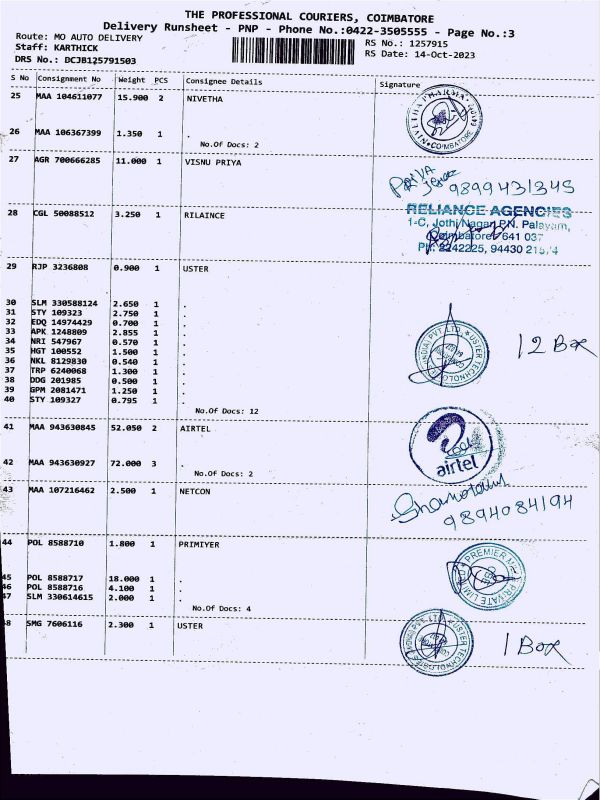 THE PROFESSIONAL COURIERS, COIMBATORE
Delivery Runsheet - PNP - Phone No.:0422-3505555 - Page No.:3
Route: MO AUTO DELIVERY RS No.: 1257915
Staff: KARTHICK RS Date: 14-Oct-2023
DRS No.: DCJB125791503
S No Consignment No Weight PCS Consignee Details Signature
25 MAA 104611077 15.900 2 NIVETHA
NIVETHA PHARMA COIMBATORE
26 MAA 106367399 1.350 1 .
No.Of Docs: 2
27 AGR 700666285 11.000 1 VISNU PRIYA
PRIYA
9899431345
28 CGL 50088512 3.250 1 RILAINCE
RELIANCE AGENCIES
1-C, Jothi Nagar P.N. Palayam,
Coimbatore 641 037
Ph: 2242225, 94430
29 RJP 3236808 0.900 1 USTER
30 SLM 330588124 2.650 1 .
31 STY 109323 2.750 1 .
32 EDQ 14974429 0.700 1 .
33 APK 1248809 2.855 1 .
34 NRI 547967 0.570 1 .
35 HGT 100552 1.500 1 .
36 NKL 8129830 0.540 1 .
37 TRP 6240068 1.300 1 .
38 DDG 201985 0.500 1 .
39 GPM 2081471 1.250 1 .
40 STY 109327 0.795 1 .
No.Of Docs: 12
12 Box
41 MAA 943630845 52.050 2 AIRTEL
airtel
42 MAA 943630927 72.000 3 .
No.Of Docs: 2
43 MAA 107216462 2.500 1 NETCON
9894084194
44 POL 8588710 1.800 1 PRIMIYER
45 POL 8588717 18.000 1 .
46 POL 8588716 4.100 1 .
47 SLM 330614615 2.000 1 .
No.Of Docs: 4
48 SMG 7606116 2.300 1 USTER
1 Box